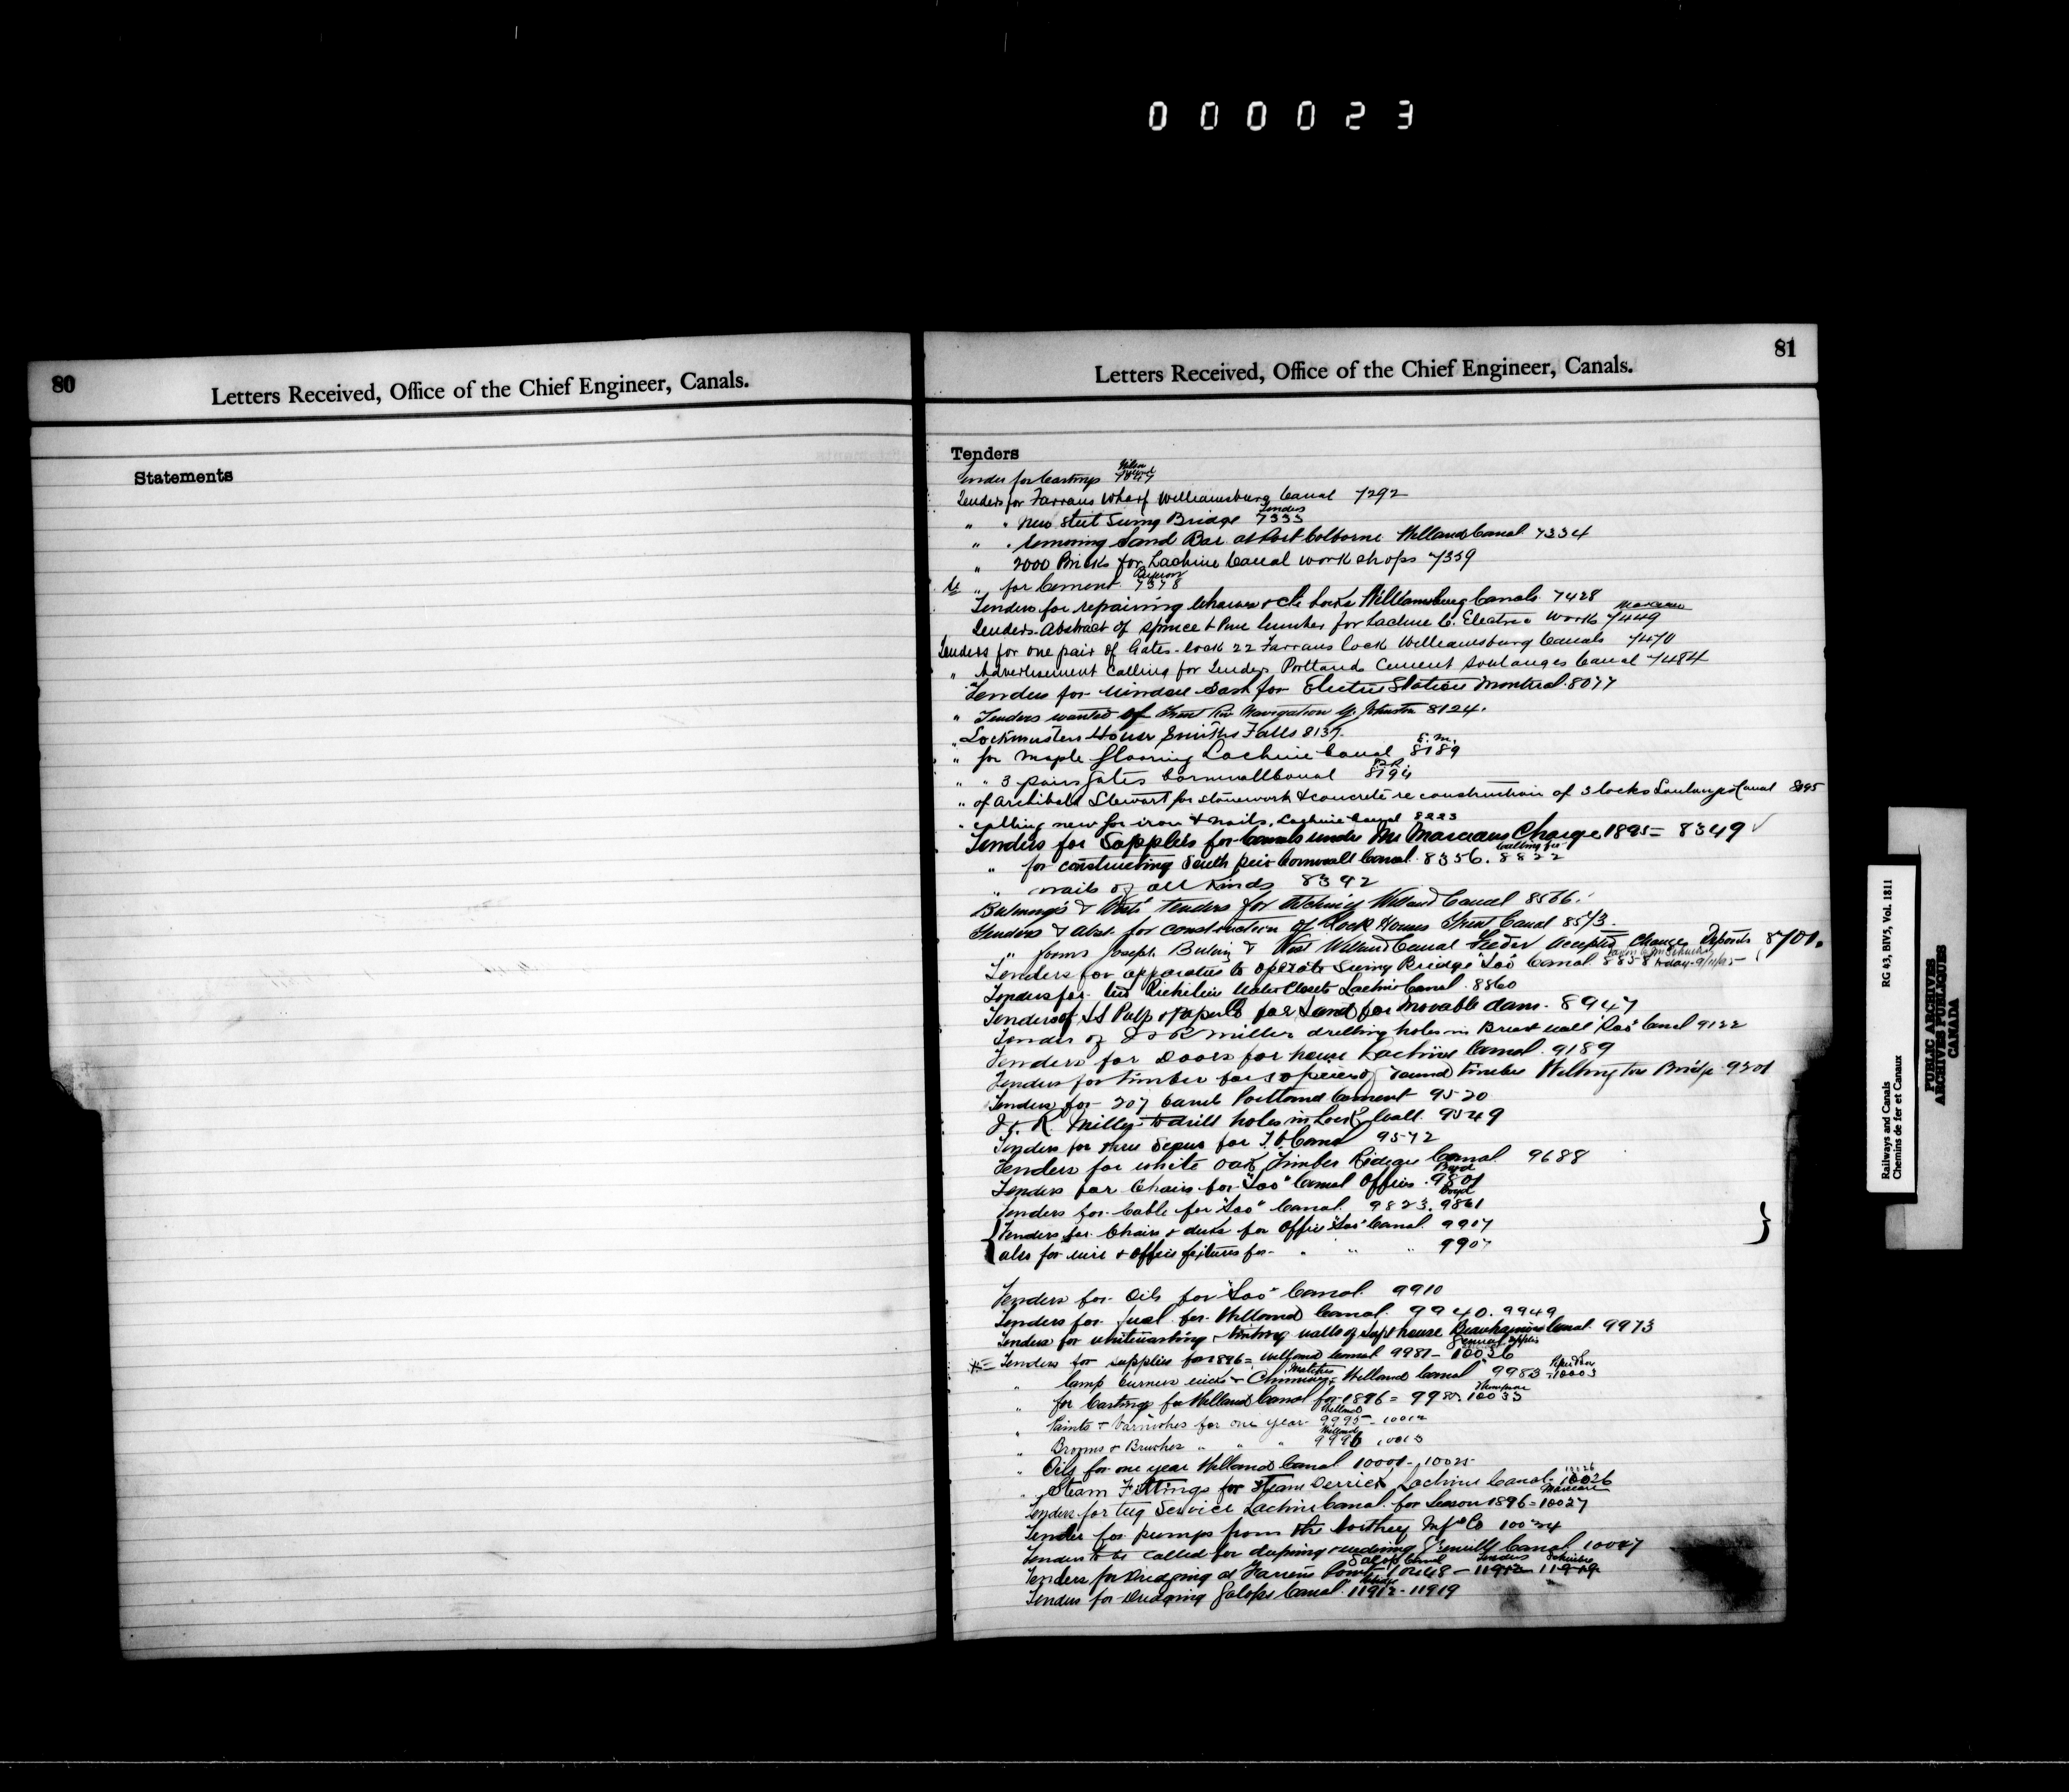 000023
80
Letters Received, Office of the Chief Engineer, Canals.
Statements
81
Letters Received, Office of the Chief Engineer, Canals.
Tenders
Tender for Castings 7047
Tenders for Farrans Wharf Williamsburg Canal 7292
" " New Steel Swing Bridge Tenders 7333
" " Removing Sand Bar at Port Colborne Welland Canal 7334
" 2000 Bricks for Lachine Canal work shops 7359
" for Cement 7378
Tenders for repairing Wharves Locks Williamsburg Canals 7428
Tenders Abstract of Spruce & Pine lumber for Lachine C. Electric Work 7449
Tenders for one pair of Gates - lock 22 Farrans lock Williamsburg Canals 7470
" Advertisement Calling for Tenders Portland Cement Soulanges Canal 7484
Tenders for window Sash for Electric Station Montreal 8077
" Tenders wanted Trent Riv Navigation Johnston 8124.
" Lockmasters House Smiths Falls 8137
" for Maple flooring Lachine Canal 8189
" " 3 pairs gates Cornwall Canal 8194
" of Archibald Stewart for stonework & concrete re construction of 3 locks Soulanges Canal 8195
" calling new for iron & nails, Lachine Canal 8223
Tenders for Supplies for Canals under Mr Marceaus Charge 1895 = 8349 ✓
" for constructing South pier Cornwall Canal 8356. 8822
" nails of all Kinds 8392
tenders for Welland Canal 8566.
Tenders & Abst. for construction of Lock Houses Trent Canal 8573.
" forms Joseph & West Welland Canal Feeder accepted change Deposits 8701.
Tenders for apparatus to operate Swing Bridge "Soo" Canal 8858
Tenders for Richelieu Water Closets Lachine Canal 8860
Tenders of Pulp & Paper Co for Land for movable dam. 8947
Tender of J & R Miller drilling holes in Breast wall "Soo" Canal 9122
Tenders for Doors for house Lachine Canal 9189
Tenders for timber for pieces of round timber Wellington Bridge 9301
Tenders for 207 barrels Portland Cement 9520
J. & R. Miller to drill holes in Lock wall 9549
Tenders for three for Canal 9572
Tenders for white oak Timber Rideau Canal 9688
Tenders for Chairs for "Soo" Canal Offices Boyd 9801
Tenders for Cable for "Soo" Canal 9823. Boyd 9861
Tenders for Chairs & desks for Office "Soo" Canal 9907
also for wire & office fixtures for " " " 9907
Tenders for Oils for "Soo" Canal 9910
Tenders for fuel for Welland Canal 9940. 9949
Tenders for whitewashing & tinting walls of Supt house Beauharnois Canal 9973
Tenders for supplies for 1896 = Welland Canal 9981 - 10036
" lamp burners wicks & Chimneys Matches Welland Canal 9983 - 10003
" for Castings for Welland Canal for 1896 = 10033
" Paints & Varnishes for one year Welland 9995 - 10012
" Brooms & Brushes " " " Welland 9996 10013
" Oils for one year Welland Canal 10001 - 10025
" Steam Fittings for Steam Derrick Lachine Canal 10026
Tenders for tug Service Lachine Canal for Season 1896 = Marceau 10027
Tender for pumps from the Northey Mfg Co 10034
Tenders to be called for deepning & widening Grenville Canal 10047
Tenders for Dredging at Farrans Point 11912 11919
Tenders for Dredging Galops Canal 11912 - 11919
Railways and Canals RG 43, BIV5, Vol. 1811
Chemins de fer et Canaux
PUBLIC ARCHIVES
ARCHIVES PUBLIQUES
CANADA